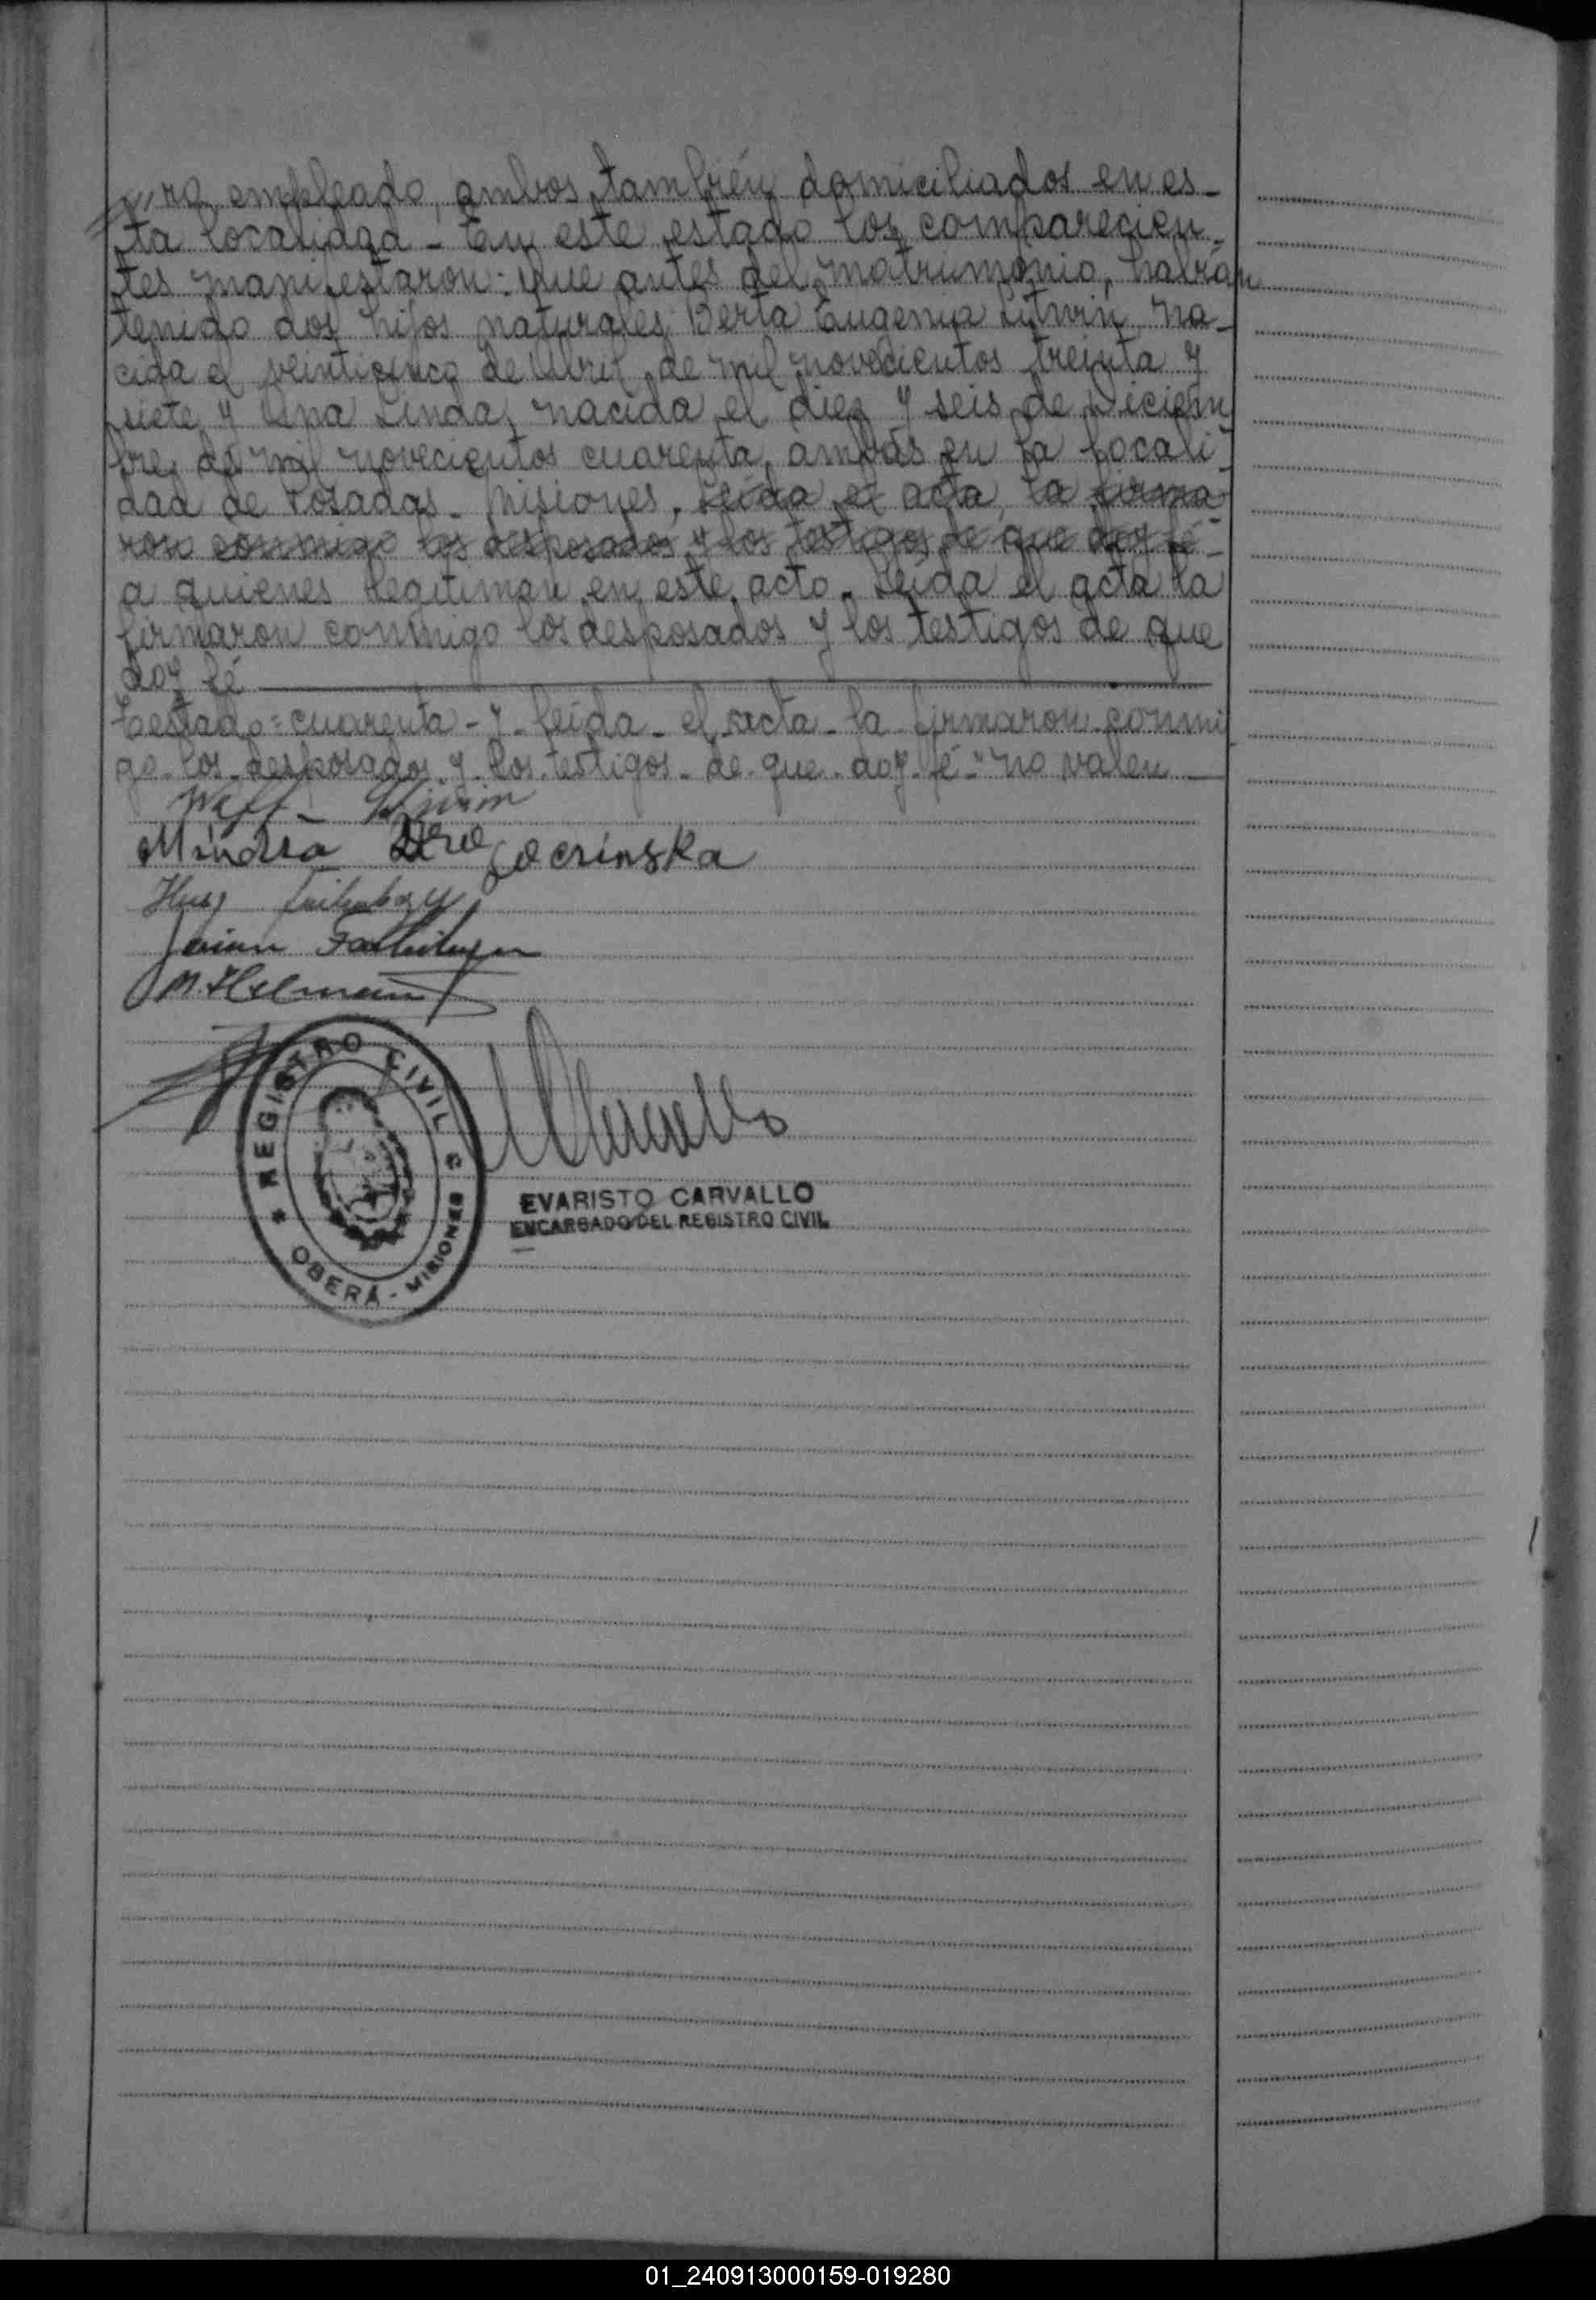 ro empleado, ambos también domiciliados en es-
ta localidad - En este estado los comparecien-
tes manifestaron: Que antes del matrimonio, habían
tenido dos hijos naturales: Berta Eugenia Litwin, na-
cida el veinticinco de Abril de mil novecientos treinta y
siete y Ana Linda, nacida el diez y seis de Diciem
bre de mil novecientos cuarenta, ambas en la locali-
dad de Posadas - Misiones, leída el acta, la firma-
ron conmigo los desposados y los testigos de que doy fé-
a quienes legitiman en este acto. Leída el acta la
firmaron conmigo los desposados y los testigos de que
doy fé
Testado = cuarenta - y - leída - el acta - la firmaron conmi
go - los - desposados - y - los - testigos - de - que - doy - fé - "no valen
Litwin
Mindla
M. Helman
REGISTRO CIVIL
OBERÁ - MISIONES
EVARISTO CARVALLO
ENCARGADO DEL REGISTRO CIVIL
01_240913000159-019280